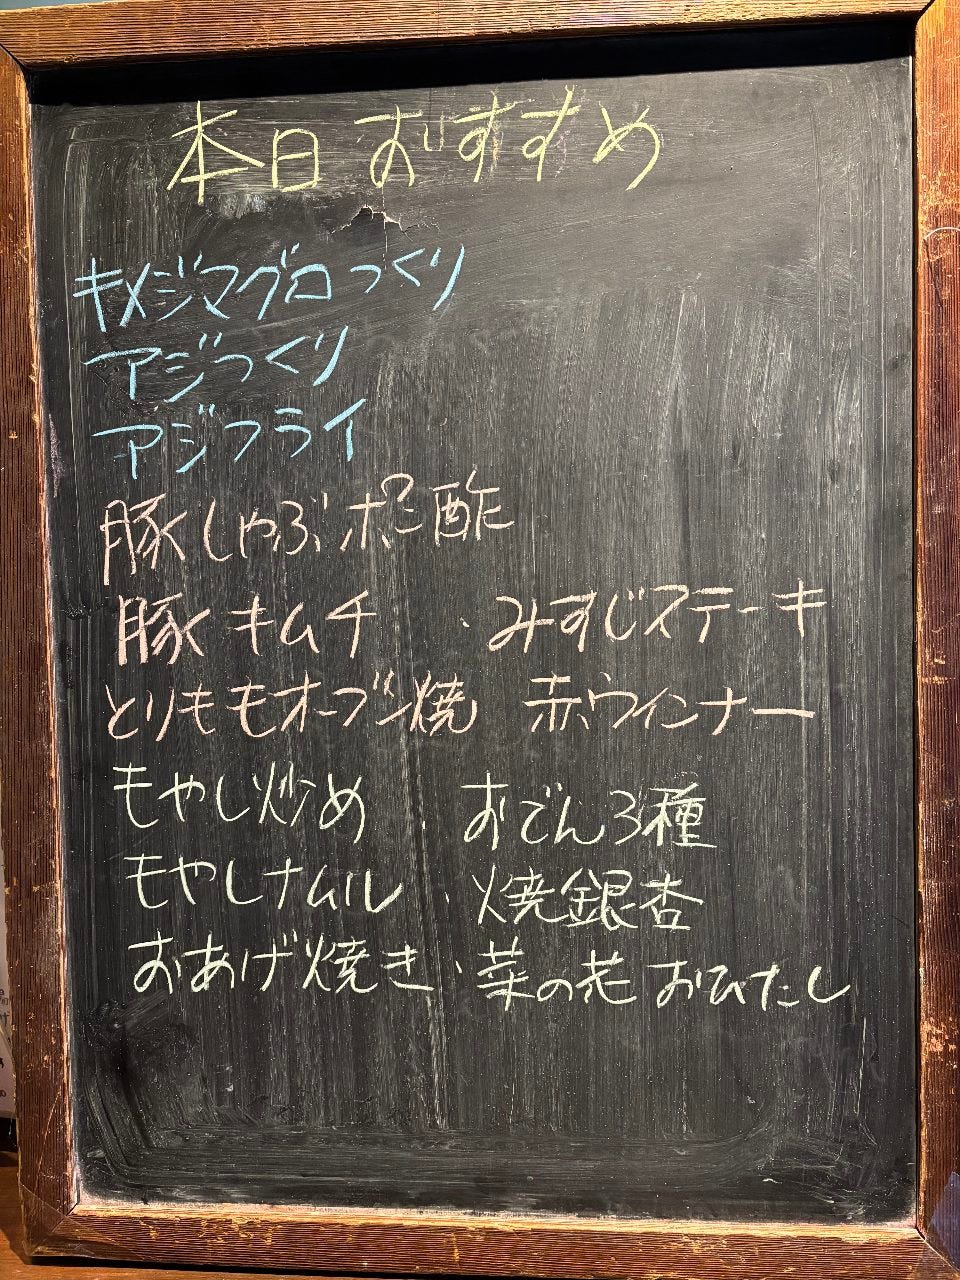 本日おすすめ
キメジマグロつくり
アジつくり
アジフライ
豚しゃぶポン酢
豚キムチ ・みすじステーキ
とりももオーブン焼 赤ウインナー
もやし炒め ・おでん3種
もやしナムル ・焼銀杏
おあげ焼き ・菜の花おひたし